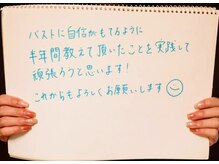 バストに自信がもてるように
半年間教えて頂いたことを実践して
頑張ろうと思います!
これからもよろしくお願いします